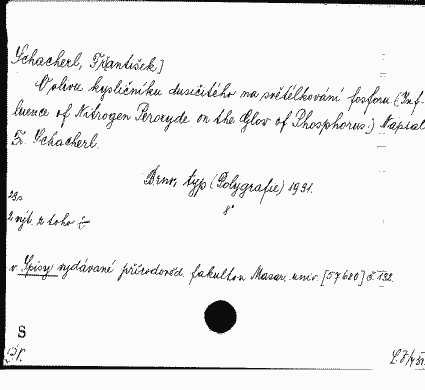 Schacherl, František]
O vlivu kysličníku dusičitého na světélkování fosforu (Inf-
luence of Nitrogen Peroxyde on the Glov of Phosphorus.) Napsal
Fr. Schacherl.
Brno, typ (Polygrafie) 1931.
8°
2 výt. z toho
v Spisy vydávané přírodověd. fakultou Masar. univ. [57680] č. 132.
S